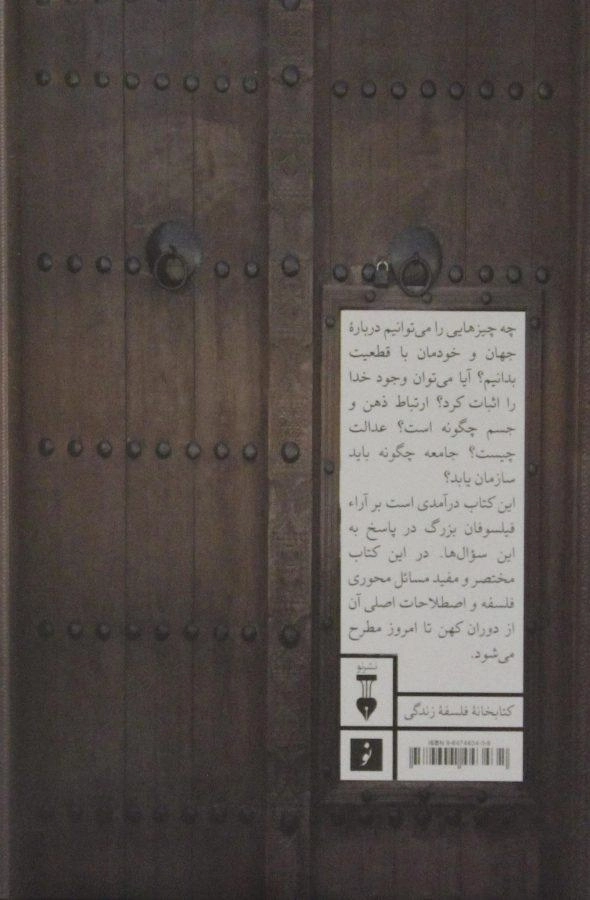 چه چیزهایی را می‌توانیم دربارهٔ
جهان و خودمان با قطعیت
بدانیم؟ آیا می‌توان وجود خدا
را اثبات کرد؟ ارتباط ذهن و
جسم چگونه است؟ عدالت
چیست؟ جامعه چگونه باید
سازمان یابد؟
این کتاب درآمدی است بر آراء
فیلسوفان بزرگ در پاسخ به
این سؤال‌ها. در این کتاب
مختصر و مفید مسائل محوری
فلسفه و اصطلاحات اصلی آن
از دوران کهن تا امروز مطرح
می‌شود.
نشرنو
کتابخانهٔ فلسفهٔ زندگی
نو
ISBN